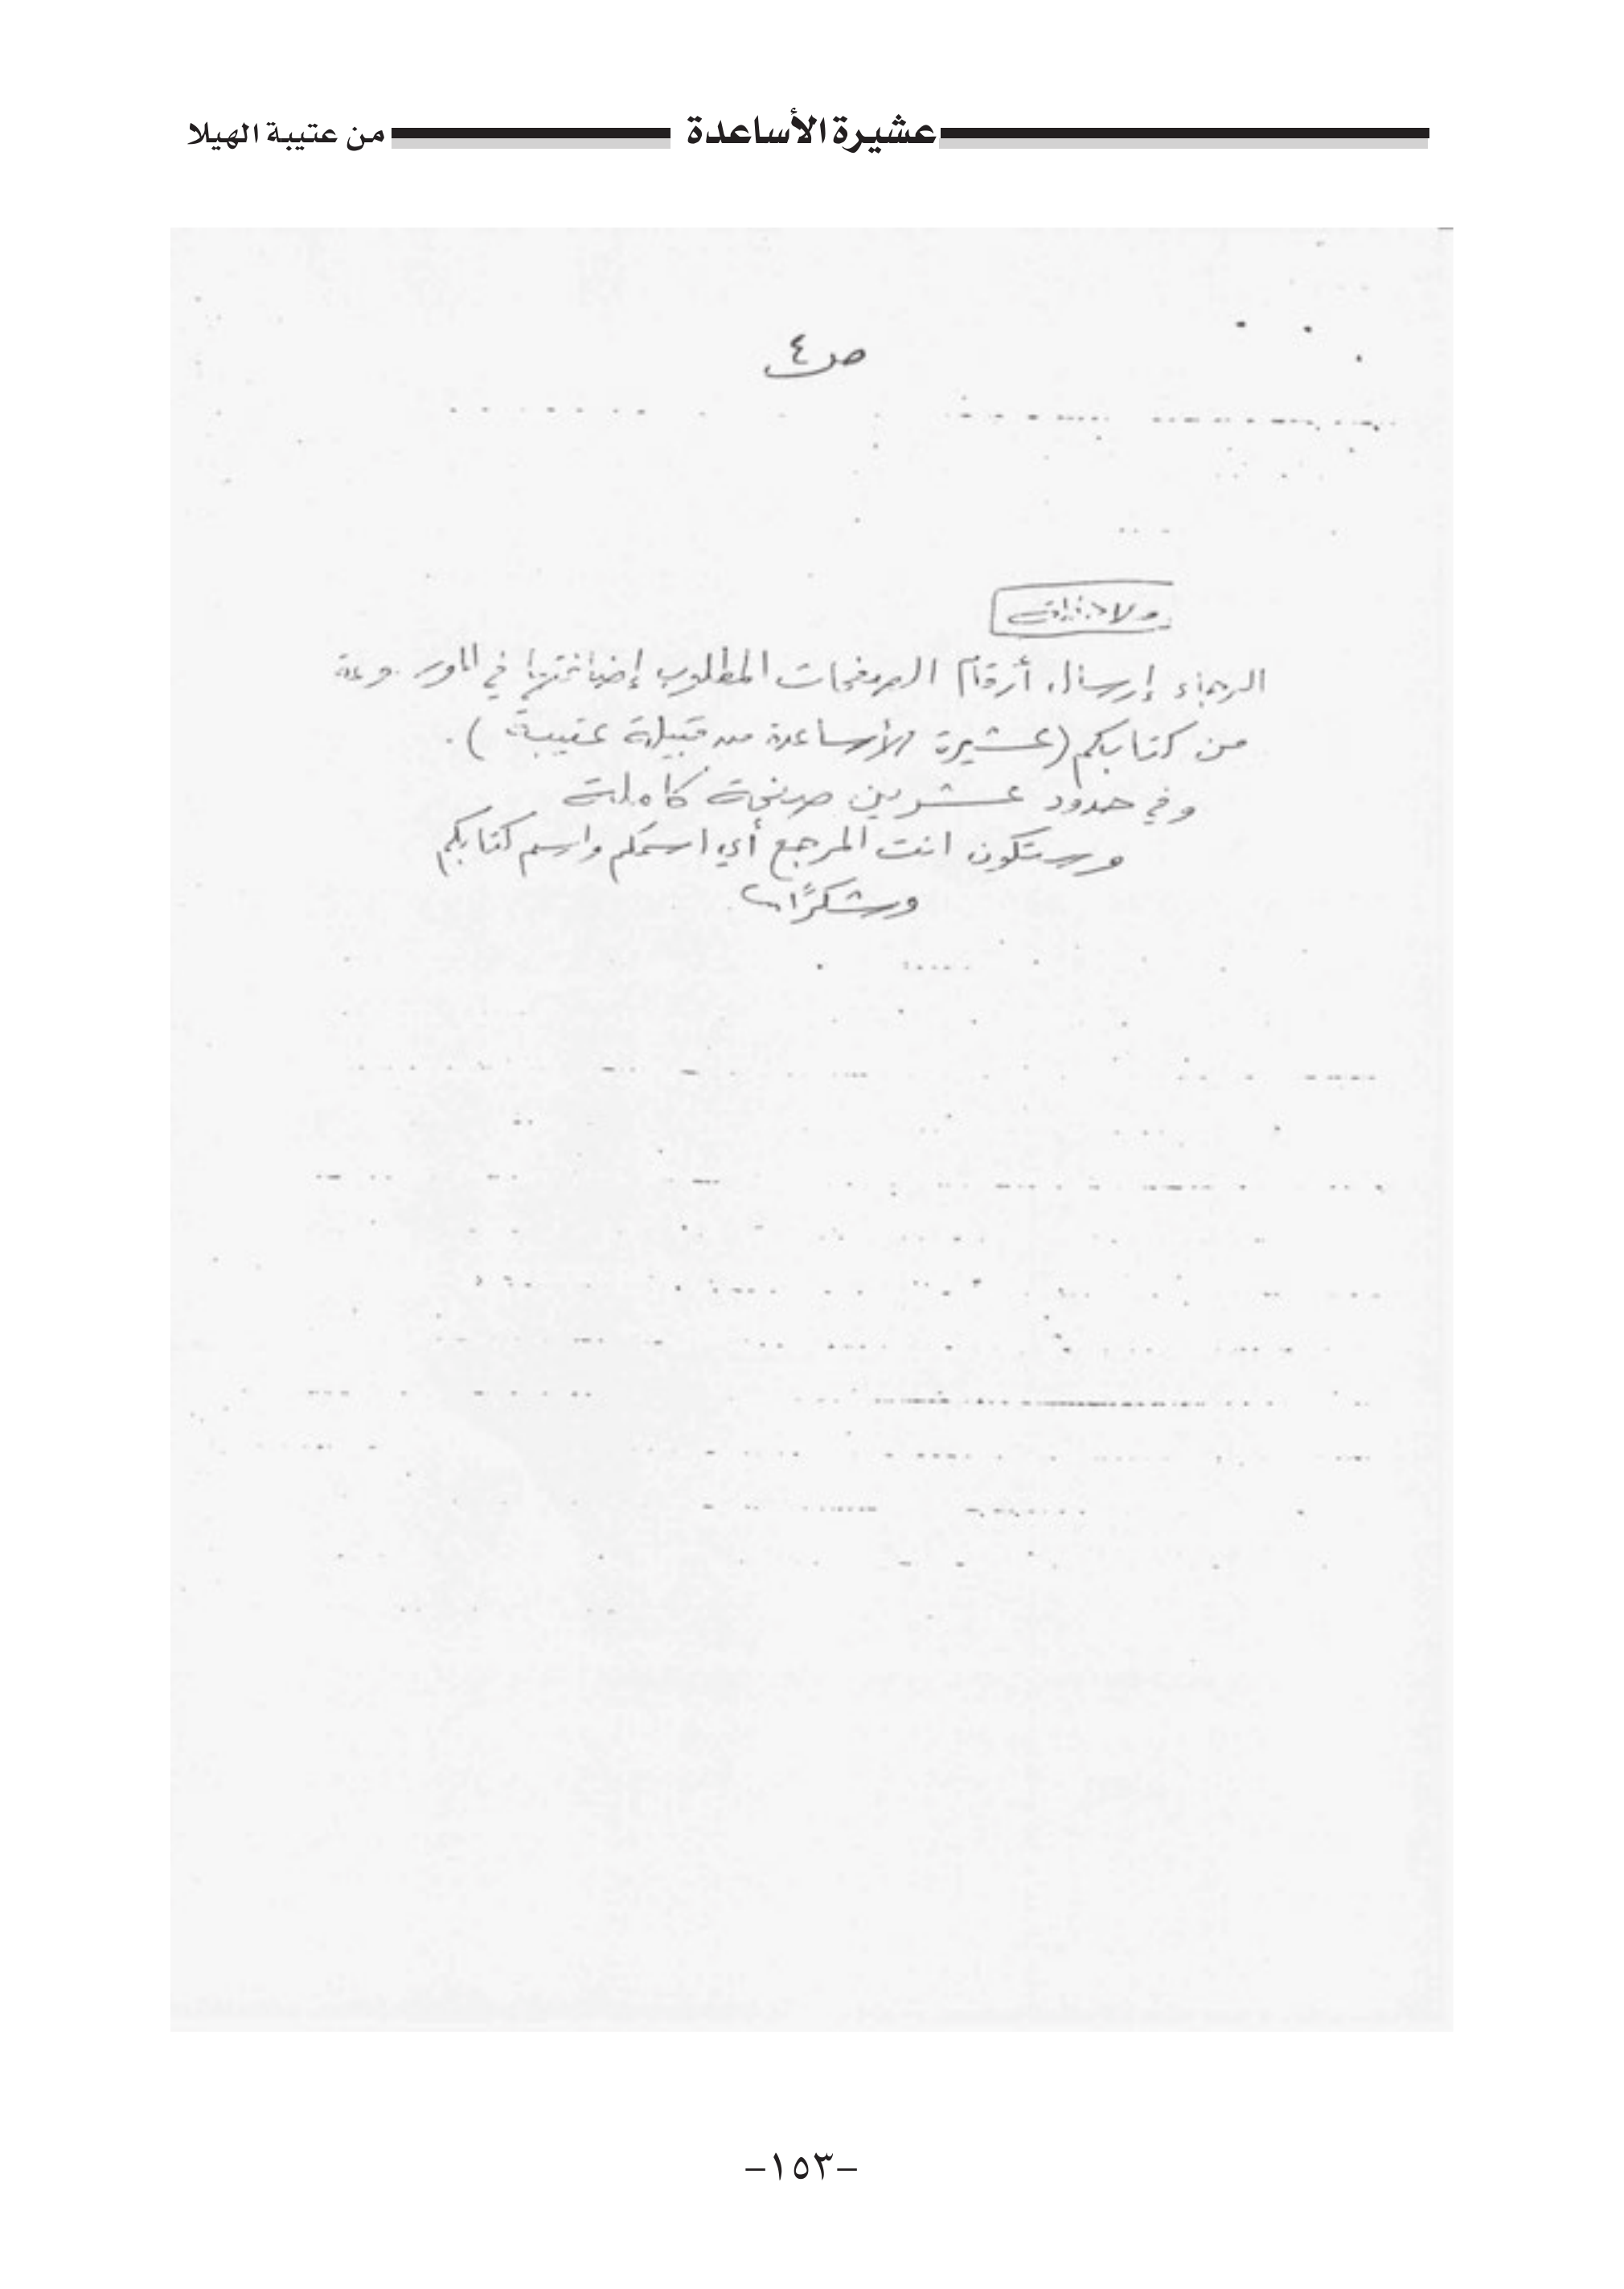 عشيرة الأساعدة من عتيبة الهيلا
ص ٤
الرجاء إرسال أرقام الصفحات المطلوب إضافتها في الموسوعة
من كتابكم (عشيرة الأساعدة من قبيلة عتيبة).
وفي حدود عشرين صفحة كاملة
وستكون انت المرجع أي اسمكم واسم كتابكم
وشكرًا
-١٥٣-